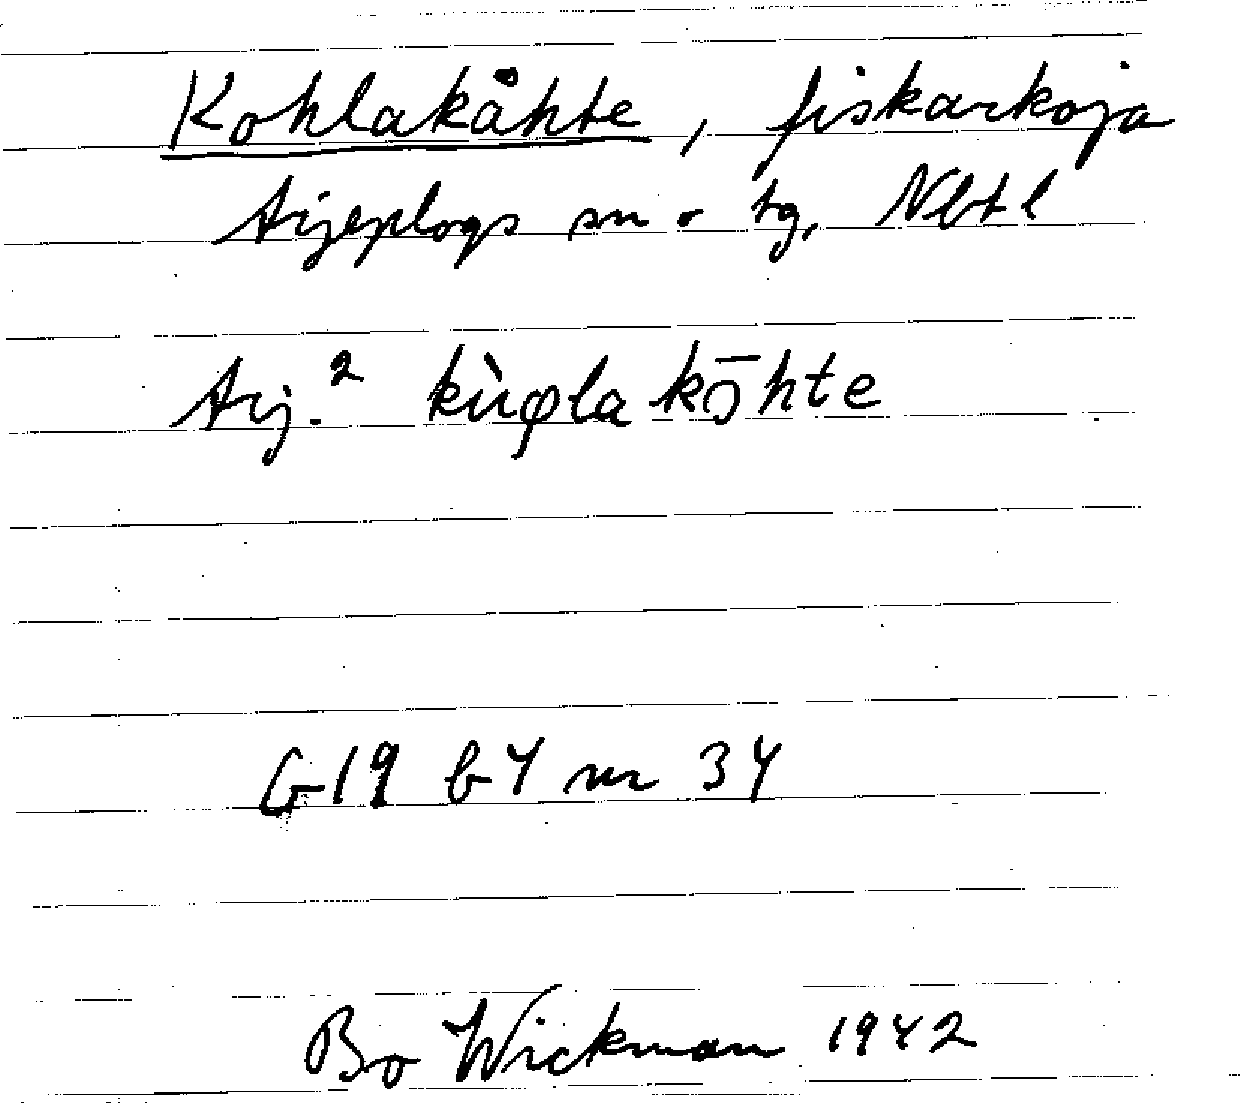 Kohlakåhte, fiskarkoja
Arjeplogs sn o tg, Nbtl
Arj.² kùφlakō̜hte
G19 b4 nr 34
Bo Wickman 1942